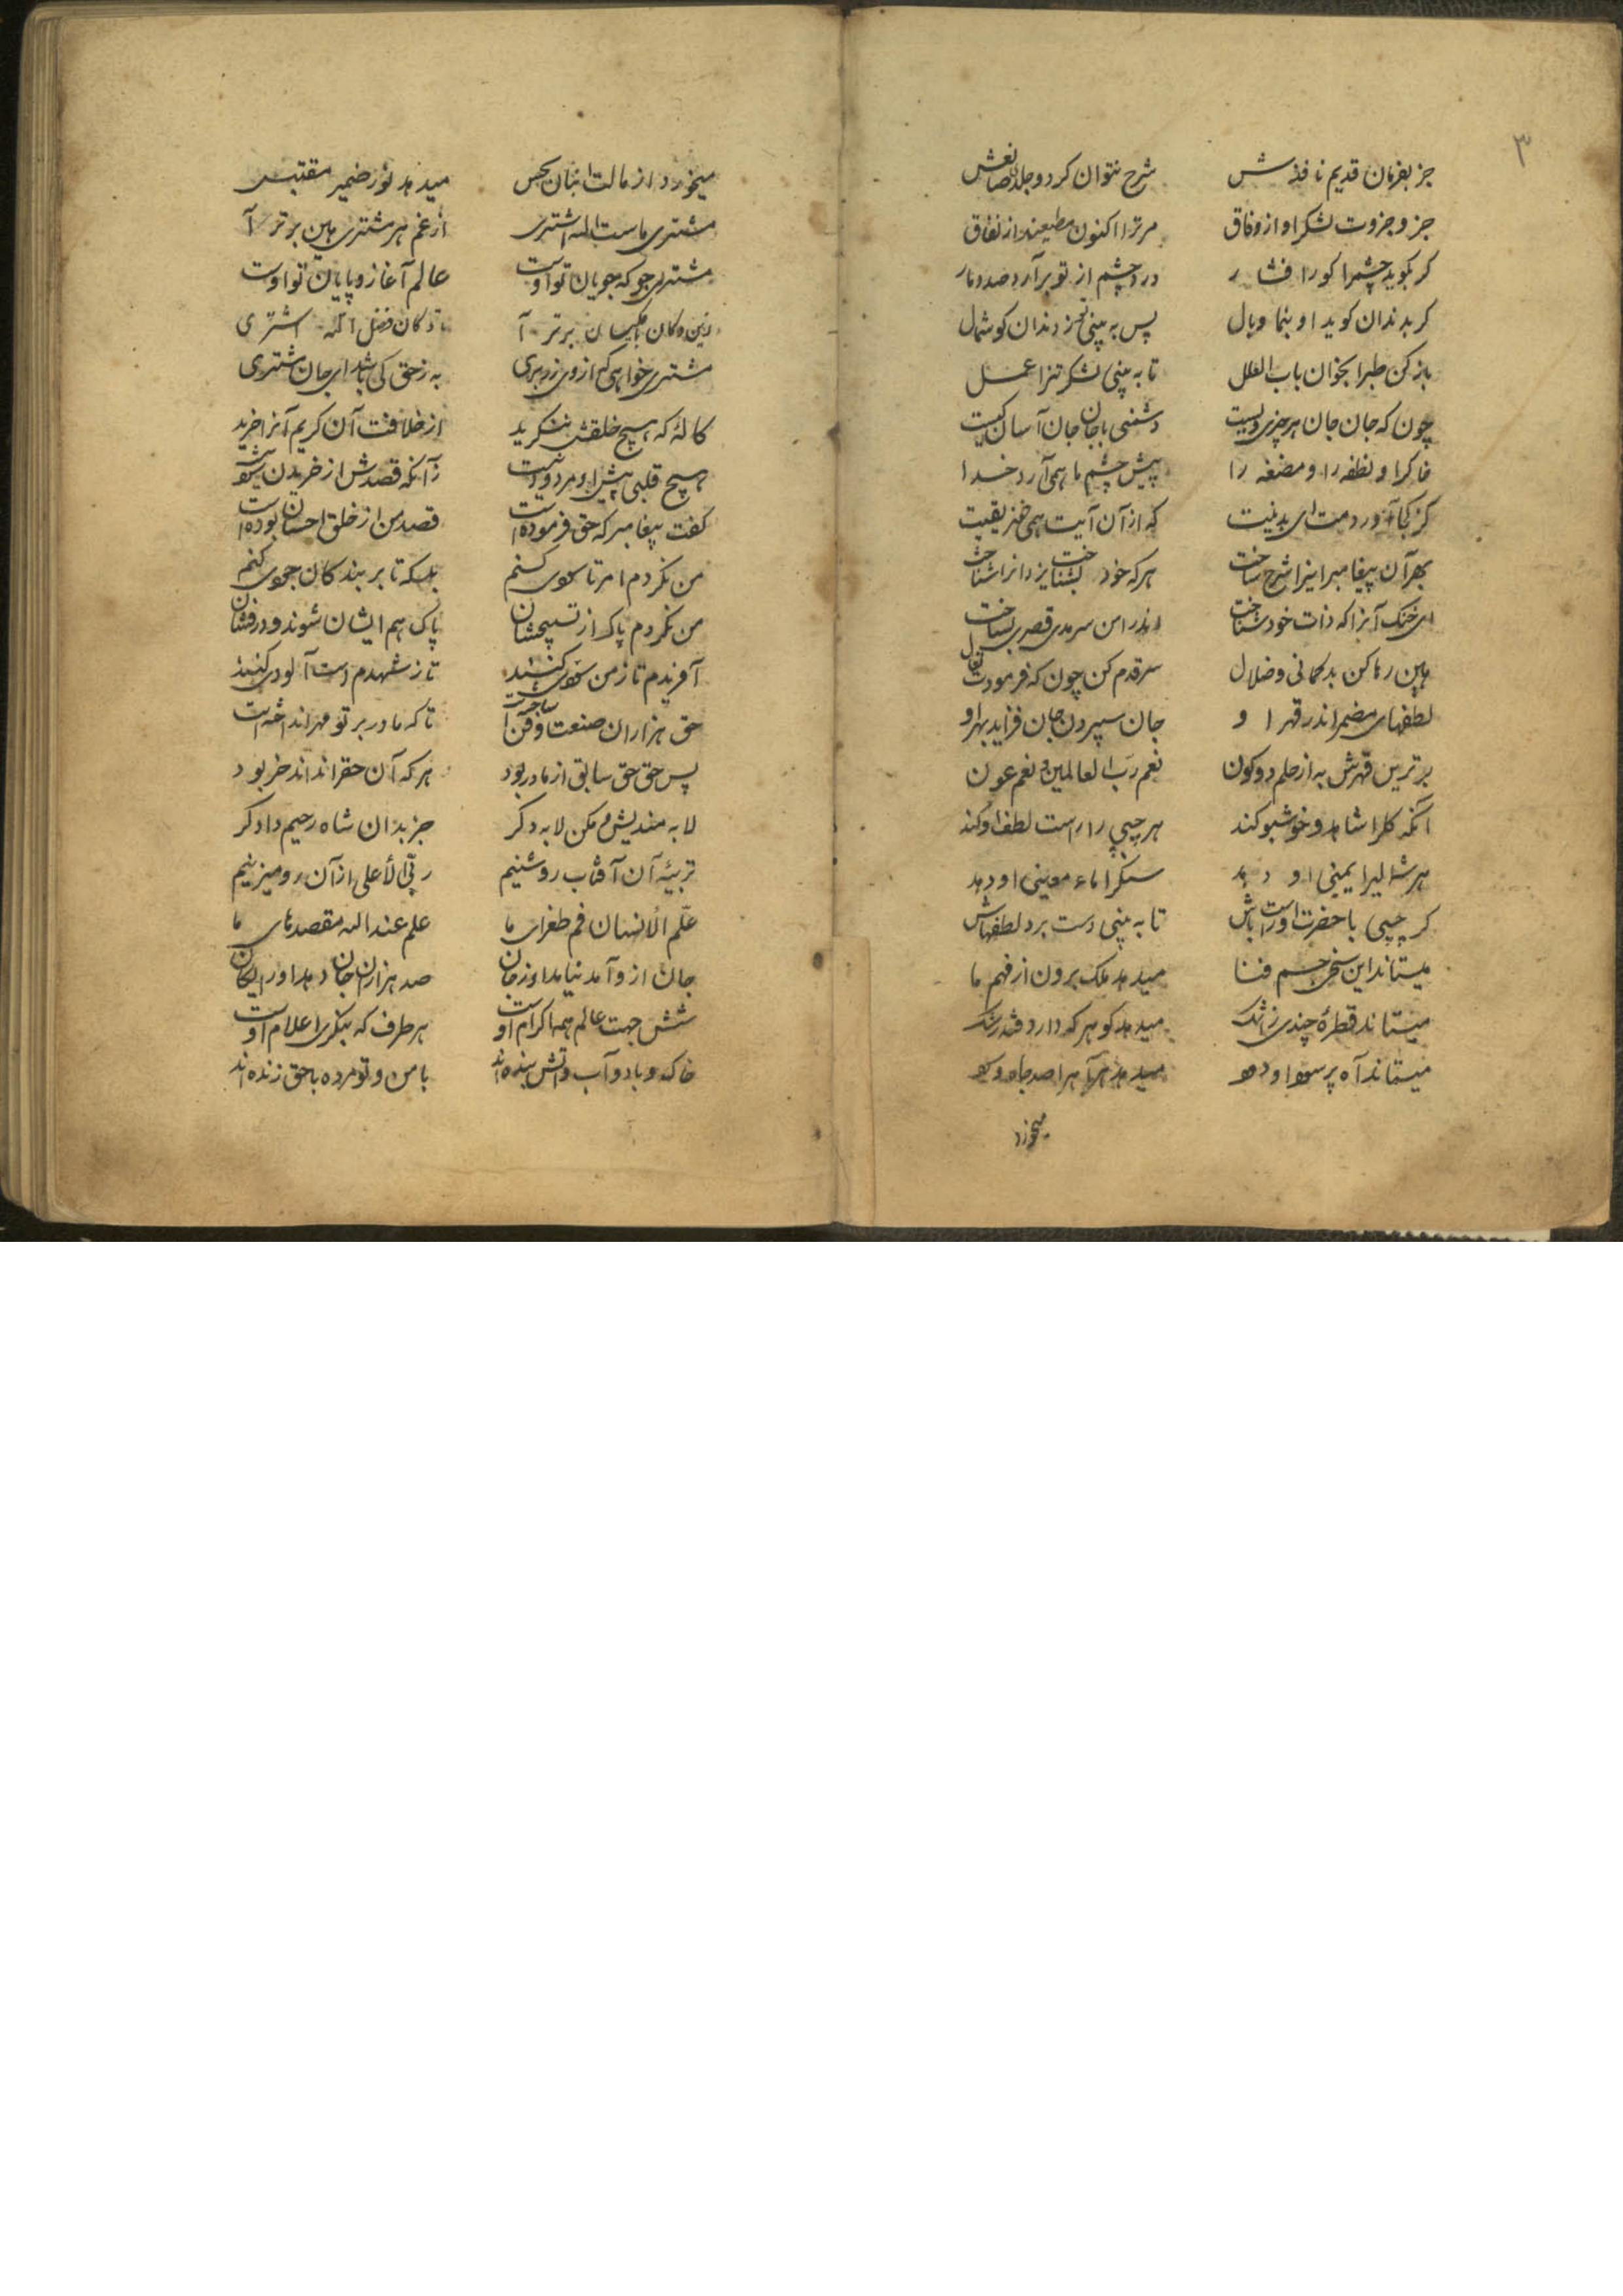 ۳
جز بفرمان قدیم نافذش شرح نتوان کرد و جلد صانعش
جزو جزوت لشکر او از وفاق مر ترا اکنون مطیعند از نفاق
کر بکوید چشم را کو را فشار درد چشم از تو برآرد صد دمار
کر بدندان کوید او بنما وبال پس به بینی تو ز دندان کوشمال
باز کن طب را بخوان باب العلل تا به بینی لشکر تن را عمل
چون که جان جان هر چیزی ویست دشمنی با جان جان آسان کیست
خاک را و نطفه را و مضغه را پیش چشم ما همی آرد خدا
کز کجا آوردمت ای بدنیت که از آن آیت همی خفریقیت
بهر آن پیغامبر اینرا شرح ساخت هر که خود بشناخت یزدانرا شناخت
ای خنک آنرا که ذات خود شناخت اندر امن سرمدی قصری بساخت
هین رها کن بدکمانی و ضلال سر قدم کن چون که فرمودت تعال
لطفهای مضمر اندر قهر او جان سپردن جان فزاید بهر او
برترین قهرش به از حلم دو کون نعم رب العالمین و نعم عون
آنکه کل را شاهد و خوشبو کند هر چپی را راست لطف او کند
هر شمالی را یمینی او دهد سنک را ماء معینی او دهد
کر چپی با حضرت او راست باش تا به بینی دست برد لطفهاش
میستاند این یخ جسم فنا میدهد ملک برون از فهم ما
میستاند قطرهٔ چندی ز اشک میدهد کوهر که دارد قند رشک
میستاند آه پر سودا و دود میدهد هر آه را صد جاه و سود
میخرد
میخرد از مالت انبان نجس میدهد نور ضمیر مقتبس
مشتری ماست الله اشتری از غم هر مشتری هین برتر آ
مشتری جو که جویان تو اوست عالم آغاز و پایان تو اوست
زین دکان برتر آ تا دکان فضل الله اشتری
مشتری خواهی که از وی زر بری به ز حق کی باشد ای جان مشتری
کالهٔ که هیچ خلقش ننکرید از خلاقت آن کریم آنرا خرید
هیچ قلبی پیش او مردود نیست زآنکه قصدش از خریدن سود نیست
کفت پیغامبر که حق فرموده است قصد من از خلق احسان بوده است
من نکردم امر تا سودی کنم بلکه تا بر بندکان جودی کنم
من نکردم پاک از تسبیحشان پاک هم ایشان شوند و درفشان
آفریدم تا ز من سودی کنند تا ز شهدم دست آلودی کنند
حق هزاران صنعت و فن ساختست تا که مادر بر تو مهر انداختست
پس حق حق سابق از مادر بود هر که آن حق را نداند خر بود
لابه مندیش و مکن لابه دکر جز بدان شاه رحیم دادکر
تربیهٔ آن آفتاب روشنیم ربی الأعلی از آن رو میزنیم
علّم الأنسان خم طغرای ما علم عند الله مقصدهای ما
جان ازو آمد نیامد او ز جان صد هزاران جان دهد او رایکان
شش جهت عالم همه اکرام اوست هر طرف که بنکری اعلام اوست
خاک و باد و آب و آتش بنده اند با من و تو مرده با حق زنده اند